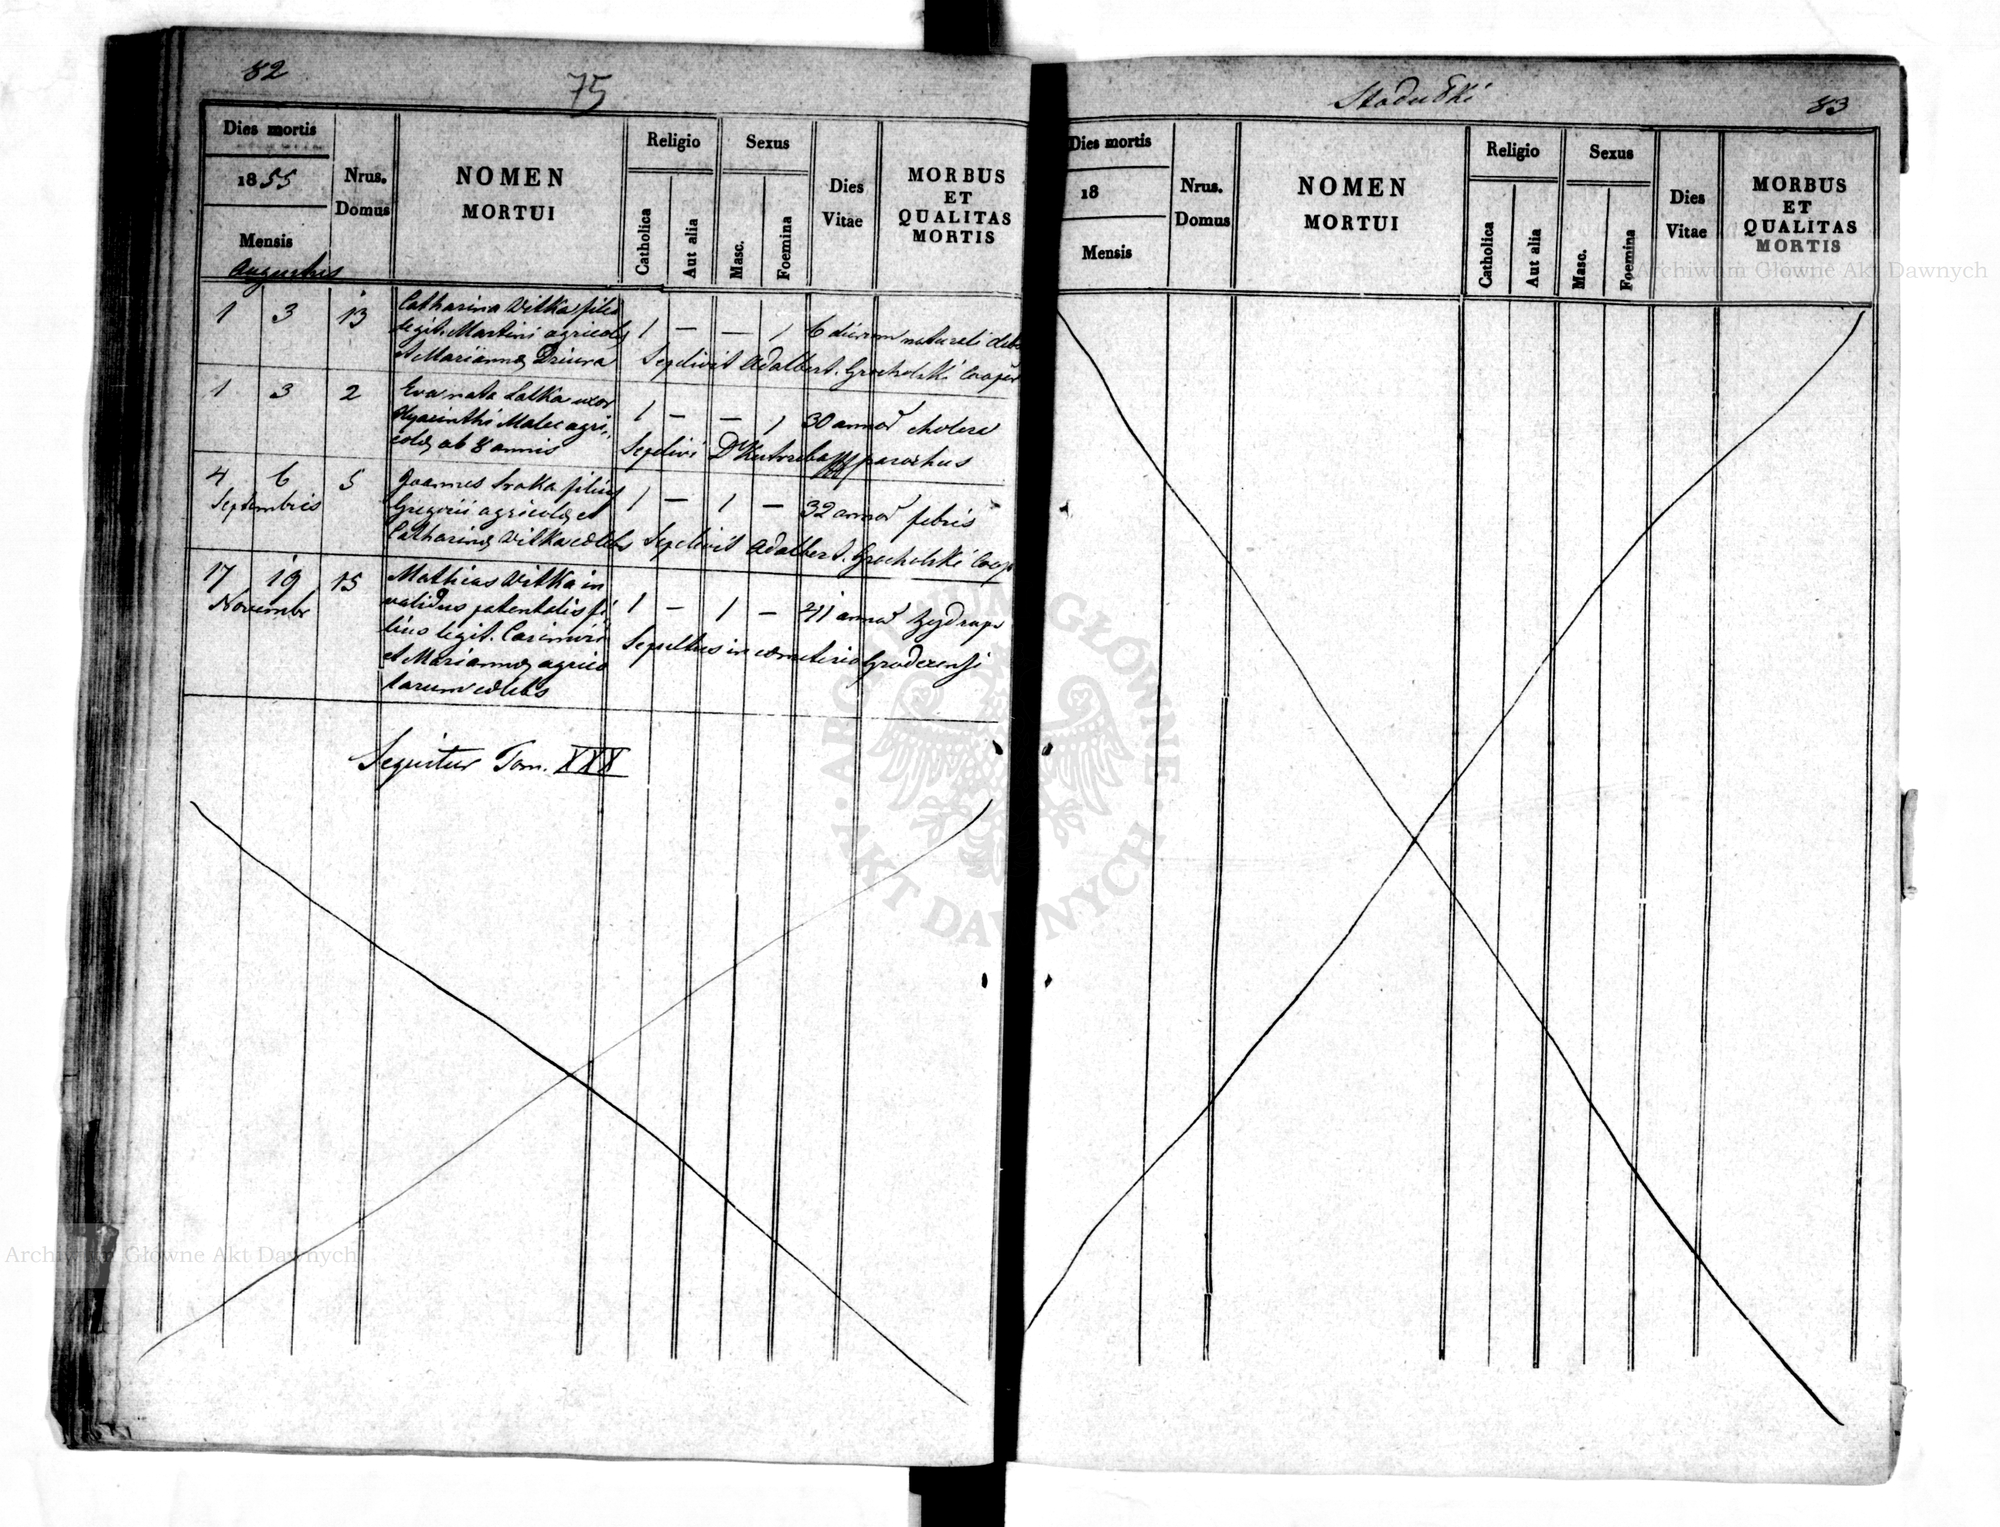 82
75
Dies mortis
1855
Mensis
Augustus
Nrus.
Domus
NOMEN
MORTUI
Religio
Catholica
Aut alia
Sexus
Masc.
Foemina
Dies
Vitae
MORBUS
ET
QUALITAS
MORTIS
1 3 13
Catharina Witka filia
legit. Martini agricolæ
et Mariannæ Dziura
1 — — 1 6 dierum naturali deb
Sepelivit Adalbert. Grocholski Cooper
1 3 2
Eva nata Latka uxor
Hyacinthi Malec agri-
colæ ab 8 annis
1 — — 1 30 annor cholera
Sepelivi parochus
4 6 5
Septembris
Joannes Sroka filius
Gregorii agricolæ et
Catharinæ Witka cœlebs
1 — 1 — 32 annor febris
Sepelivit Adalbert. Grocholski Coop
17 19 15
Novembr
Mathias Witka in
validus patentalis fi
lius legit. Casimiri
et Mariannæ agrico
larum cœlebs
1 — 1 — 41 annor hydrops
Sepultus in cœmeterio
Sequitur Tom. XXX
83
Dies mortis
18
Mensis
Nrus.
Domus
NOMEN
MORTUI
Religio
Catholica
Aut alia
Sexus
Masc.
Foemina
Dies
Vitae
MORBUS
ET
QUALITAS
MORTIS
Archiwum Główne Akt Dawnych
ARCHIWUM GŁÓWNE
AKT DAWNYCH
Archiwum Główne Akt Dawnych